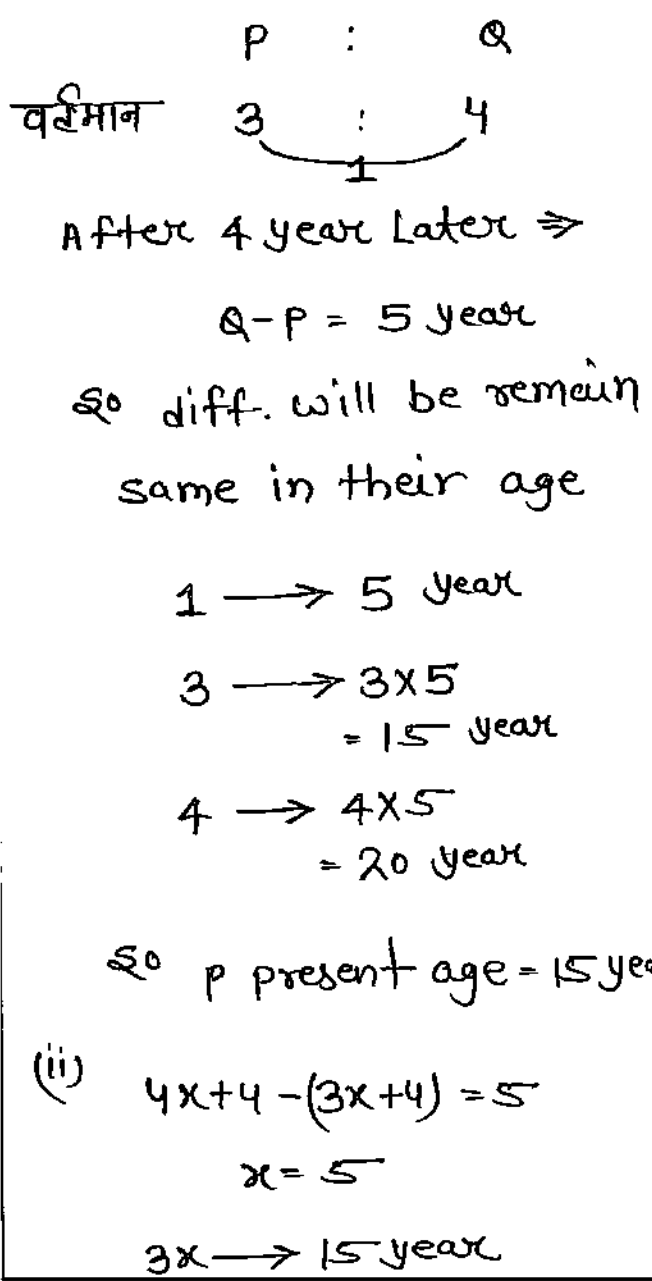 P : Q
वर्तमान 3 : 4
1
After 4 year Later ⇒
Q-P = 5 year
So diff. will be remain
same in their age
1 → 5 year
3 → 3×5
= 15 year
4 → 4×5
= 20 year
So P present age = 15 yea
(ii) 4x+4-(3x+4) = 5
x = 5
3x → 15 year